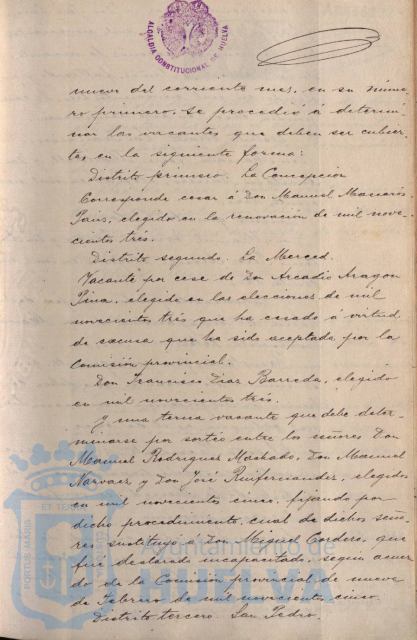 ALCALDIA CONSTITUCIONAL DE HUELVA
nueve del corriente mes, en su núme-
ro primero, se procedió á determi-
nar las vacantes que deben ser cubier-
tas, en la siguiente forma:
Distrito primero. La Concepcion
Corresponde cesar á Don Manuel
elegido en la renovación de mil nove-
cientos trés.
Distrito segundo. La Merced.
Vacante por cese de Don Arcadio Aragon
Pina, elegido en las elecciones de mil
novecientos trés que ha cesado á virtud
de escusa que ha sido aceptada por la
Comisión provincial.
Don Francisco Diaz Barreda, elegido
en mil novecientos trés.
y una terna vacante que debe deter-
minarse por sortéo entre los señores Don
Manuel Rodriguez Machado, Don Manuel
Narvaez y Don José Ruifernandez, elegidos
en mil novecientos cinco, fijando por
dicho procedimiento, cual de dichos seño-
res sustituyó á Don Miguel Cordero, que
fué declarado incapacitado, según acuer-
do de la Comisión provincial de nueve
de Febrero de mil novecientos cinco.
Distrito tercero. San Pedro.
PORTUS MARIS ET TERRAE
Ayuntamiento de
HUELVA